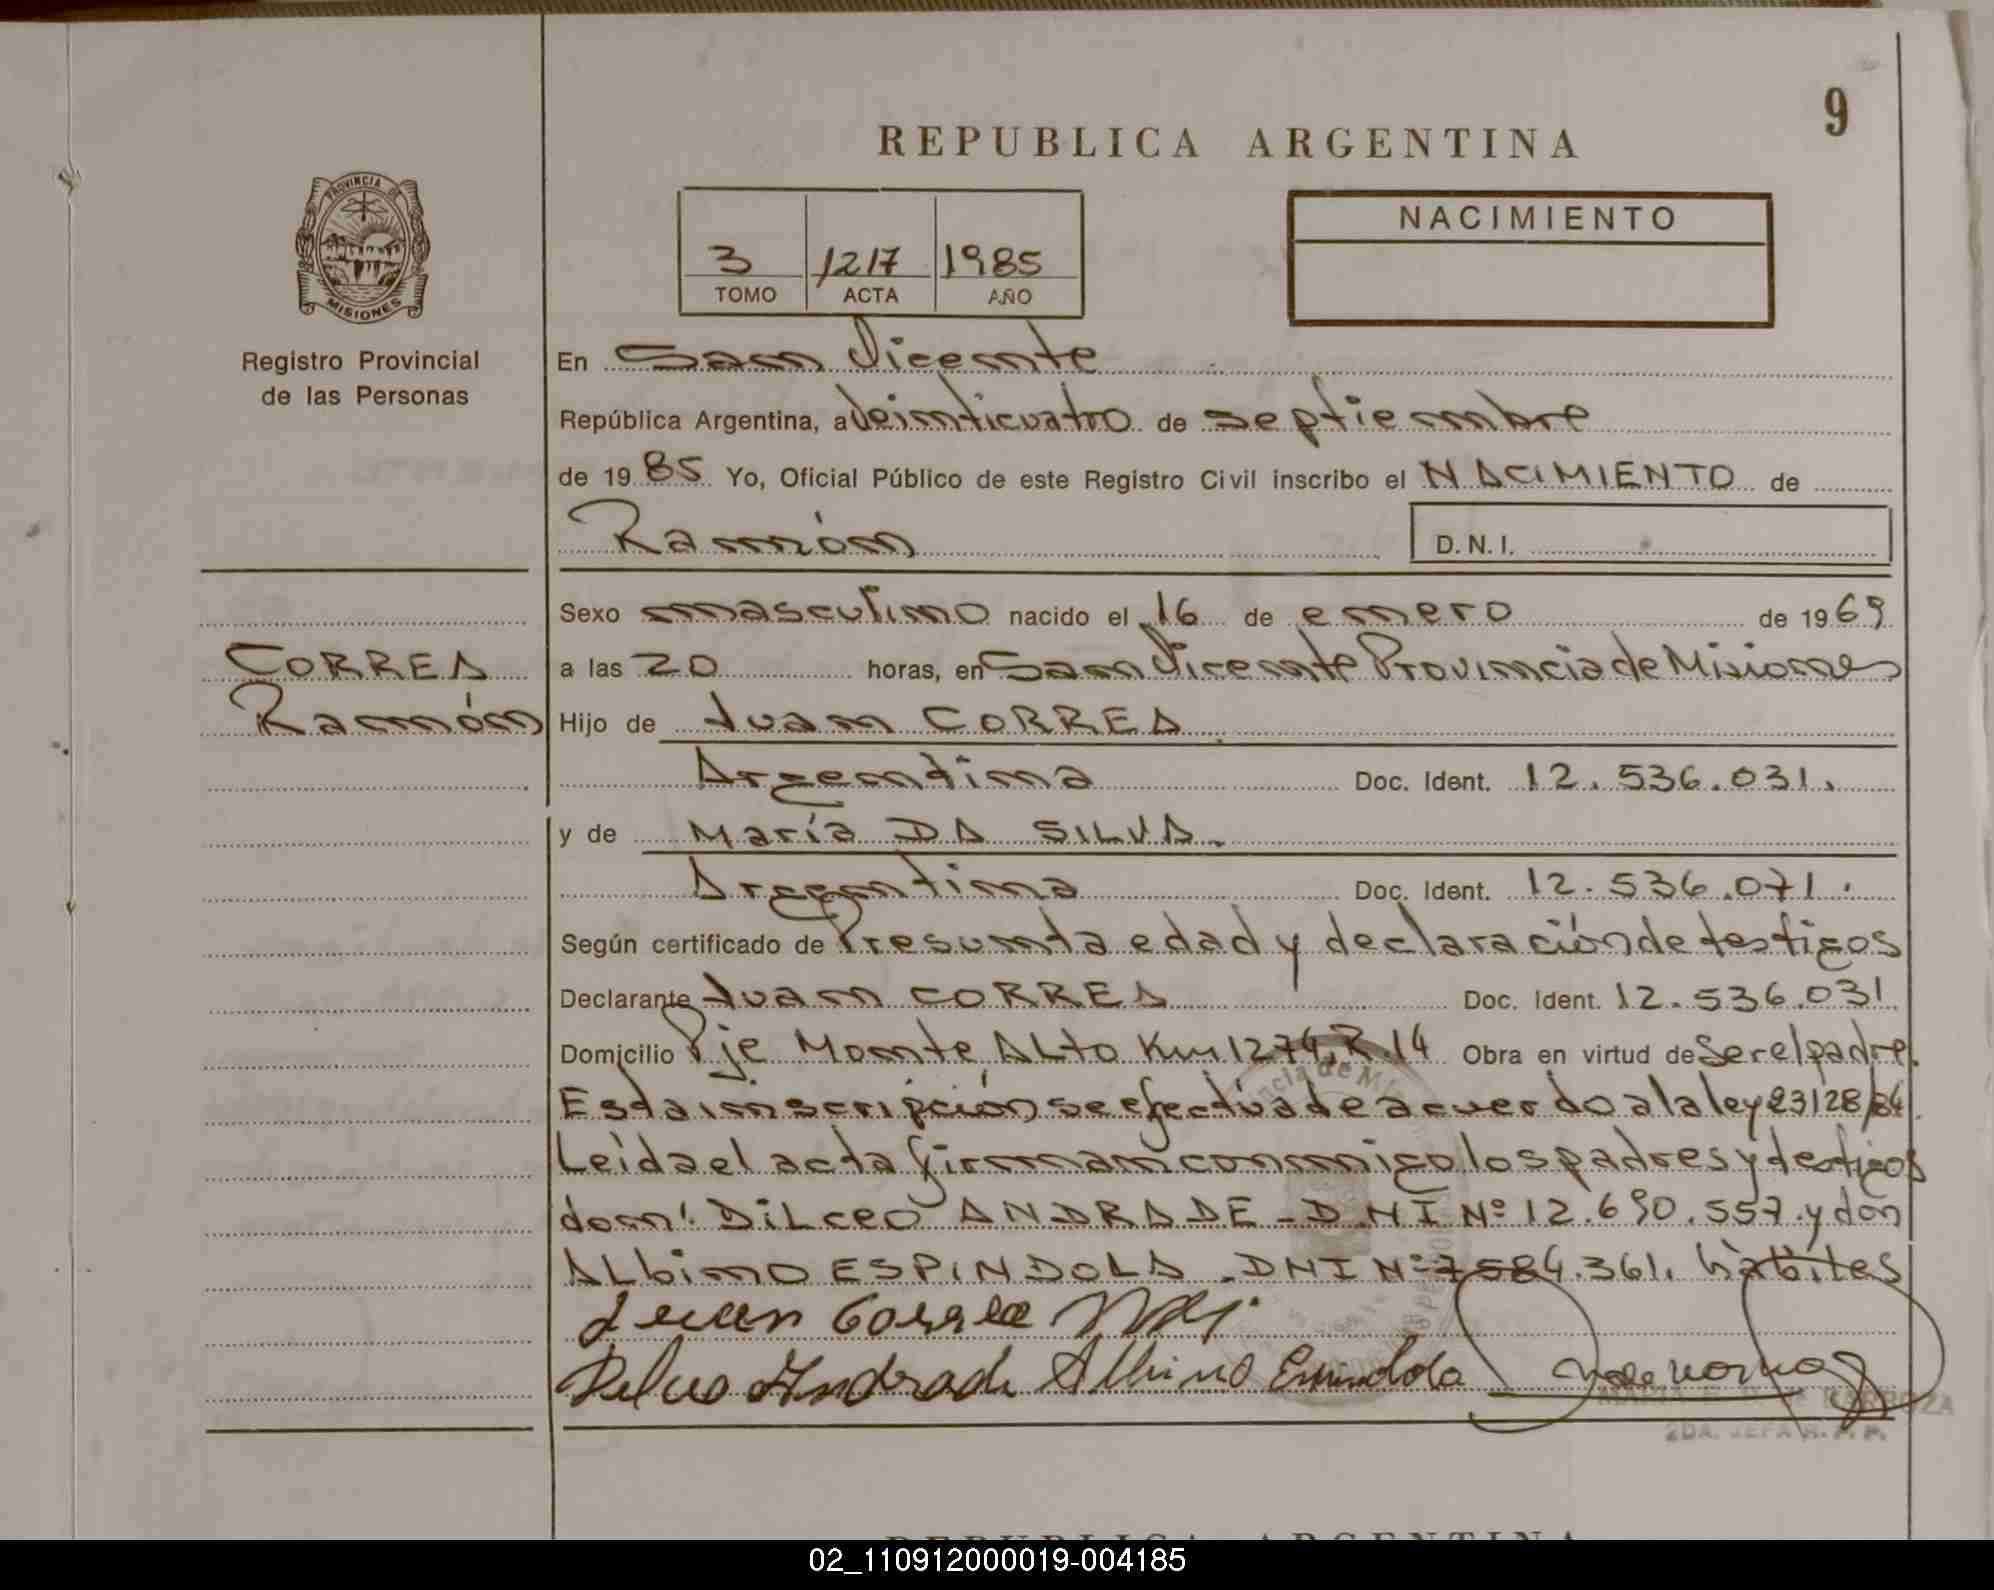 9
REPUBLICA ARGENTINA
PROVINCIA DE
MISIONES
Registro Provincial
de las Personas
3 1217 1985
TOMO ACTA AÑO
NACIMIENTO
En San Vicente
República Argentina, a Veinticuatro de septiembre
de 19 85 Yo, Oficial Público de este Registro Civil inscribo el NACIMIENTO de
Ramón D.N.I.
Sexo masculino nacido el 16 de enero de 19 69
CORREA
Ramón
a las 20 horas, en San Vicente Provincia de Misiones
Hijo de Juan CORREA
Argentina Doc. Ident. 12.536.031.
y de María DA SILVA.
Argentina Doc. Ident. 12.536.071.
Según certificado de Presunta edad y declaración de testigos
Declarante Juan CORREA Doc. Ident. 12.536.031
Domicilio Pje Monte Alto Km 1274, R.14 Obra en virtud de Ser el padre.
Esta inscripción se efectúa de acuerdo a la ley 23128/84.
Leída el acta firman conmigo los padres y testigos
don: Dilceo ANDRADE - DNI Nº 12.690.557. y don
Albino ESPINDOLA. DNI Nº 7584.361. hábiles
Juan Correa
Andrade Albino Espindola
2DA. JEFA R.P.P.
REPUBLICA ARGENTINA
02_110912000019-004185